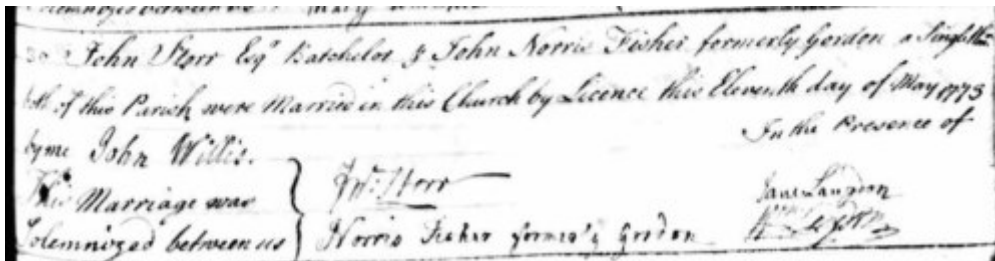 Solemnized between us
John Storr Esqr. Batchelor & John Norris Fisher formerly Gordon a Single
both of this Parish were Married in this Church by Licence this Eleventh day of May 1773
In the Presence of
by me John Willis.
This Marriage was
Solemnized between us
Jno. Storr
Norris Fisher formerly Gordon
Jane Langdon